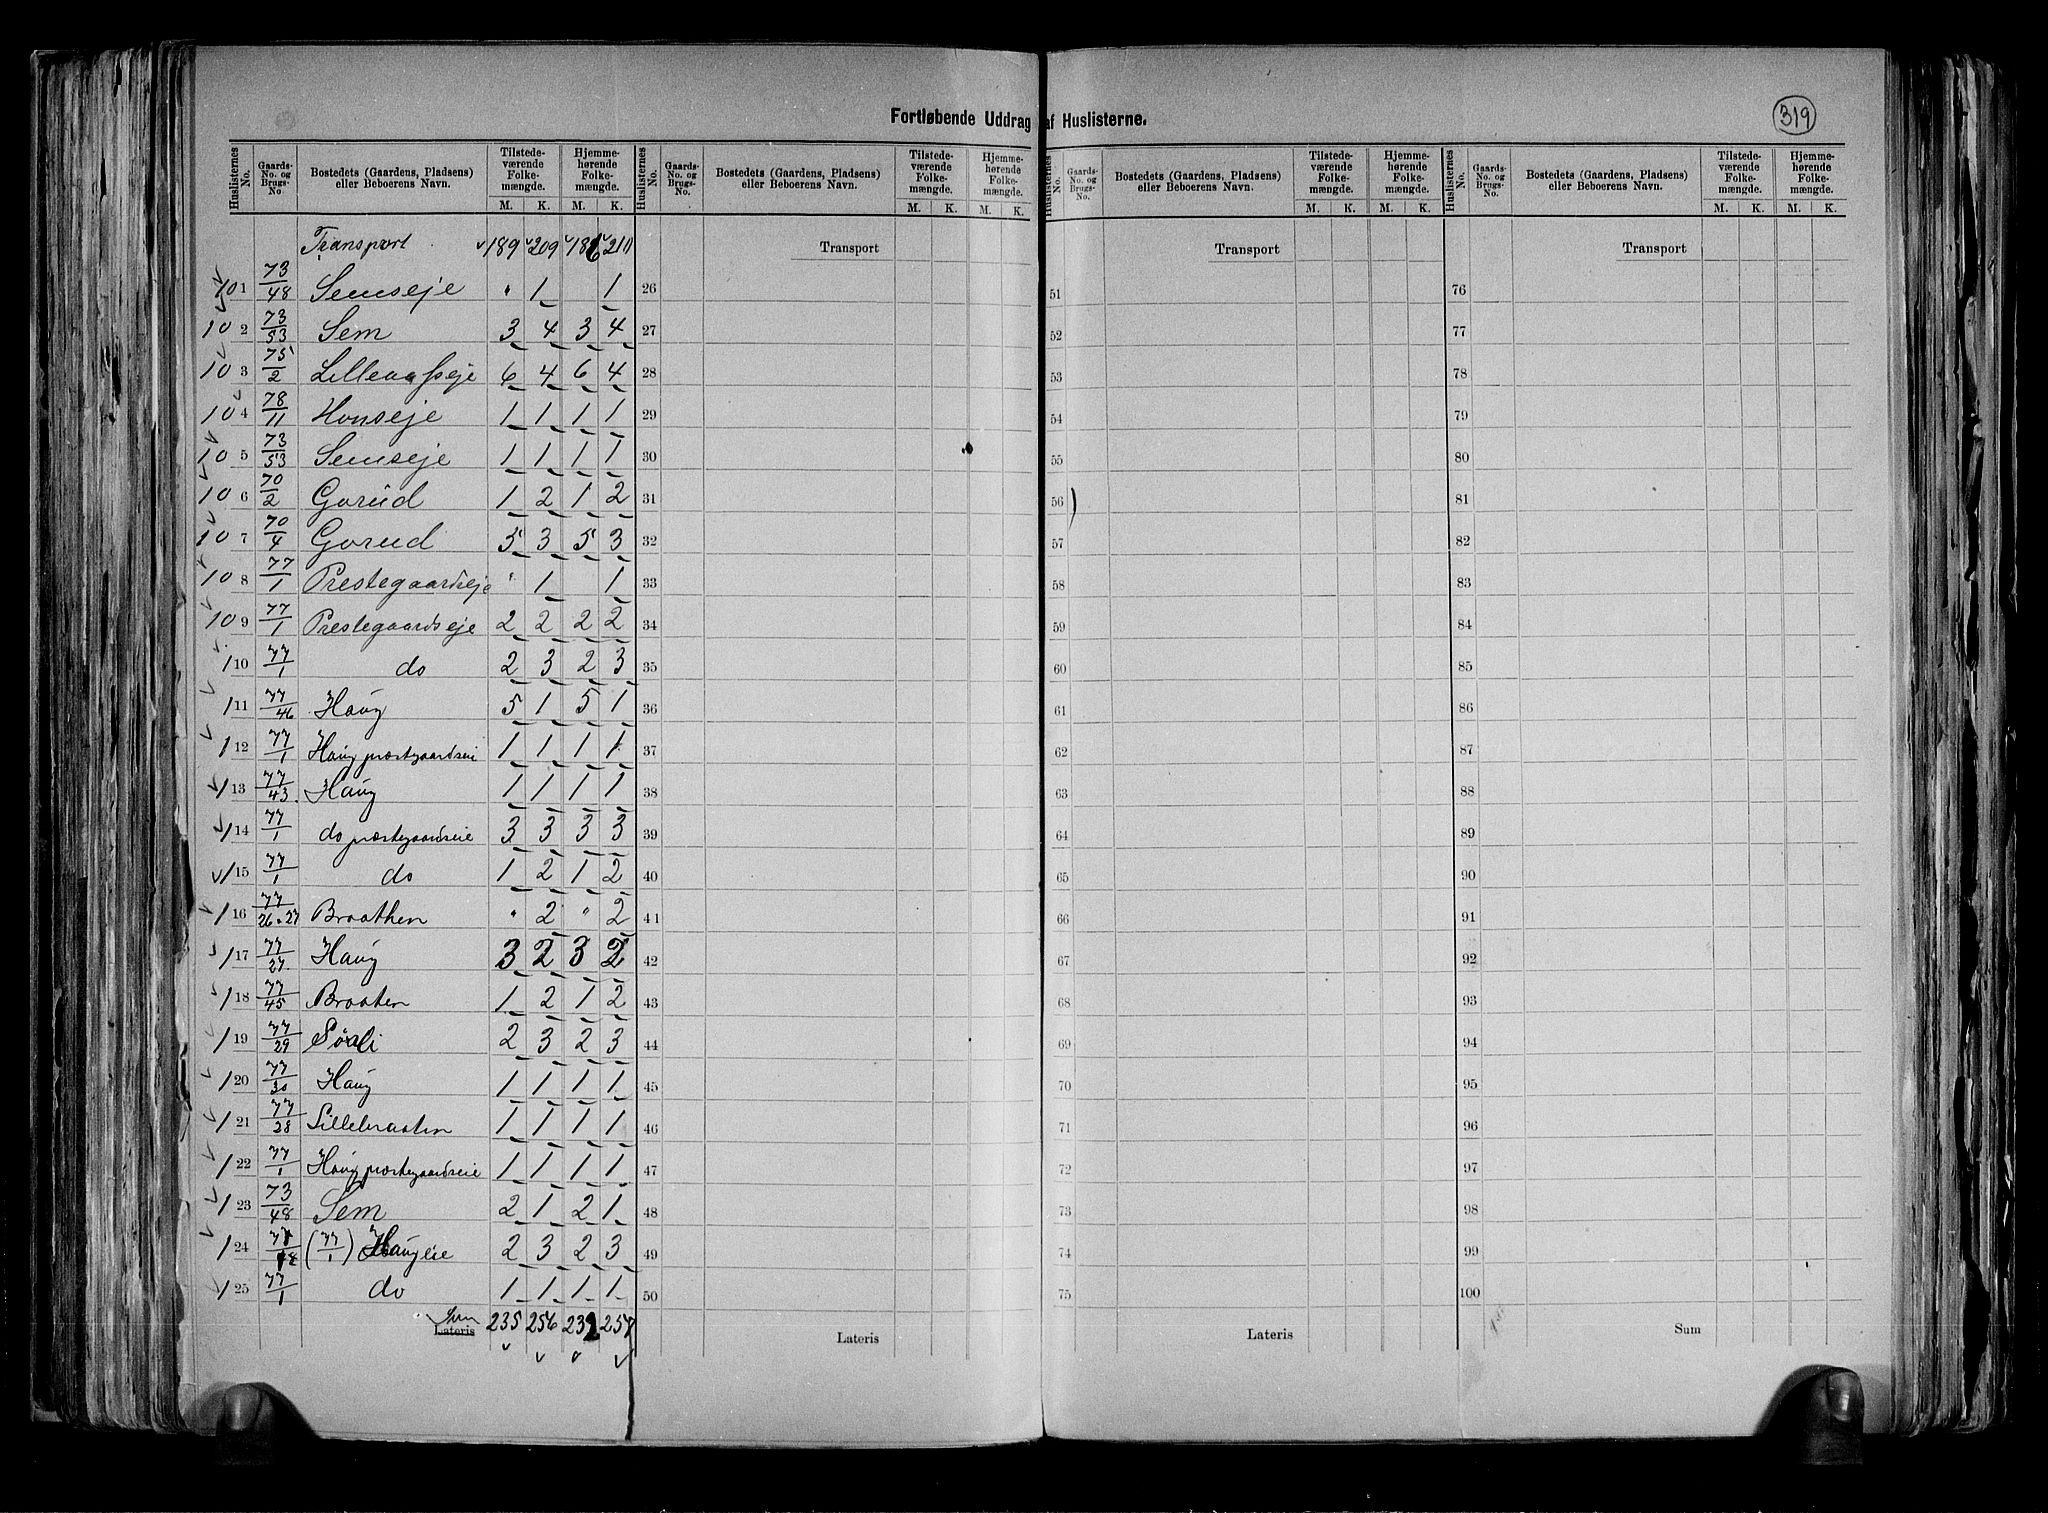 Fortløbende Uddrag af Huslisterne.
319
Huslisternes No. | Gaards-No. og Brugs-No | Bostedets (Gaardens, Pladsens) eller Beboerens Navn. | Tilstedeværende Folkemængde. M. K. | Hjemmehørende Folkemængde. M. K.
Transport 189 209 186 210
101 73/48 Semseje " 1 1
102 73/53 Sem 3 4 3 4
103 75/2 6 4 6 4
104 78/11 Honseje 1 1 1 1
105 73/53 Semseje 1 1 1 1
106 70/2 Gorud 1 2 1 2
107 70/4 Gorud 5 3 5 3
108 77/1 Prestegaardseje " 1 1
109 77/1 Prestegaardseje 2 2 2 2
110 77/1 do 2 3 2 3
111 77/46 Haug 5 1 5 1
112 77/1 Haug præstgaardseie 1 1 1 1
113 77/43. Haug 1 1 1 1
114 77/1 do præstegaardseie 3 3 3 3
115 77/1 do 1 2 1 2
116 77/26 " 27 Braathen " 2 " 2
117 77/27. Haug 3 2 3 2
118 77/45 Braaten 1 2 1 2
119 77/29 Søali 2 3 2 3
120 77/30 Haug 1 1 1 1
121 77/28 Lillebraaten 1 1 1 1
122 77/1 Haug præstegaardseie 1 1 1 1
123 73/48 Sem 2 1 2 1
124 77/18 (77/1) Haugeie 2 3 2 3
125 77/1 do 1 1 1 1
Sum
Lateris 235 256 232 257
Huslisternes No. | Gaards-No. og Brugs-No. | Bostedets (Gaardens, Pladsens) eller Beboerens Navn. | Tilstedeværende Folkemængde. M. K. | Hjemmehørende Folkemængde. M. K.
Transport
26
27
28
29
30
31
32
33
34
35
36
37
38
39
40
41
42
43
44
45
46
47
48
49
50
Lateris
Huslisternes No. | Gaards-No. og Brugs-No. | Bostedets (Gaardens, Pladsens) eller Beboerens Navn. | Tilstedeværende Folkemængde. M. K. | Hjemmehørende Folkemængde. M. K.
Transport
51
52
53
54
55
56
57
58
59
60
61
62
63
64
65
66
67
68
69
70
71
72
73
74
75
Lateris
Huslisternes No. | Gaards-No. og Brugs-No. | Bostedets (Gaardens, Pladsens) eller Beboerens Navn. | Tilstedeværende Folkemængde. M. K. | Hjemmehørende Folkemængde. M. K.
Transport
76
77
78
79
80
81
82
83
84
85
86
87
88
89
90
91
92
93
94
95
96
97
98
99
100
Sum